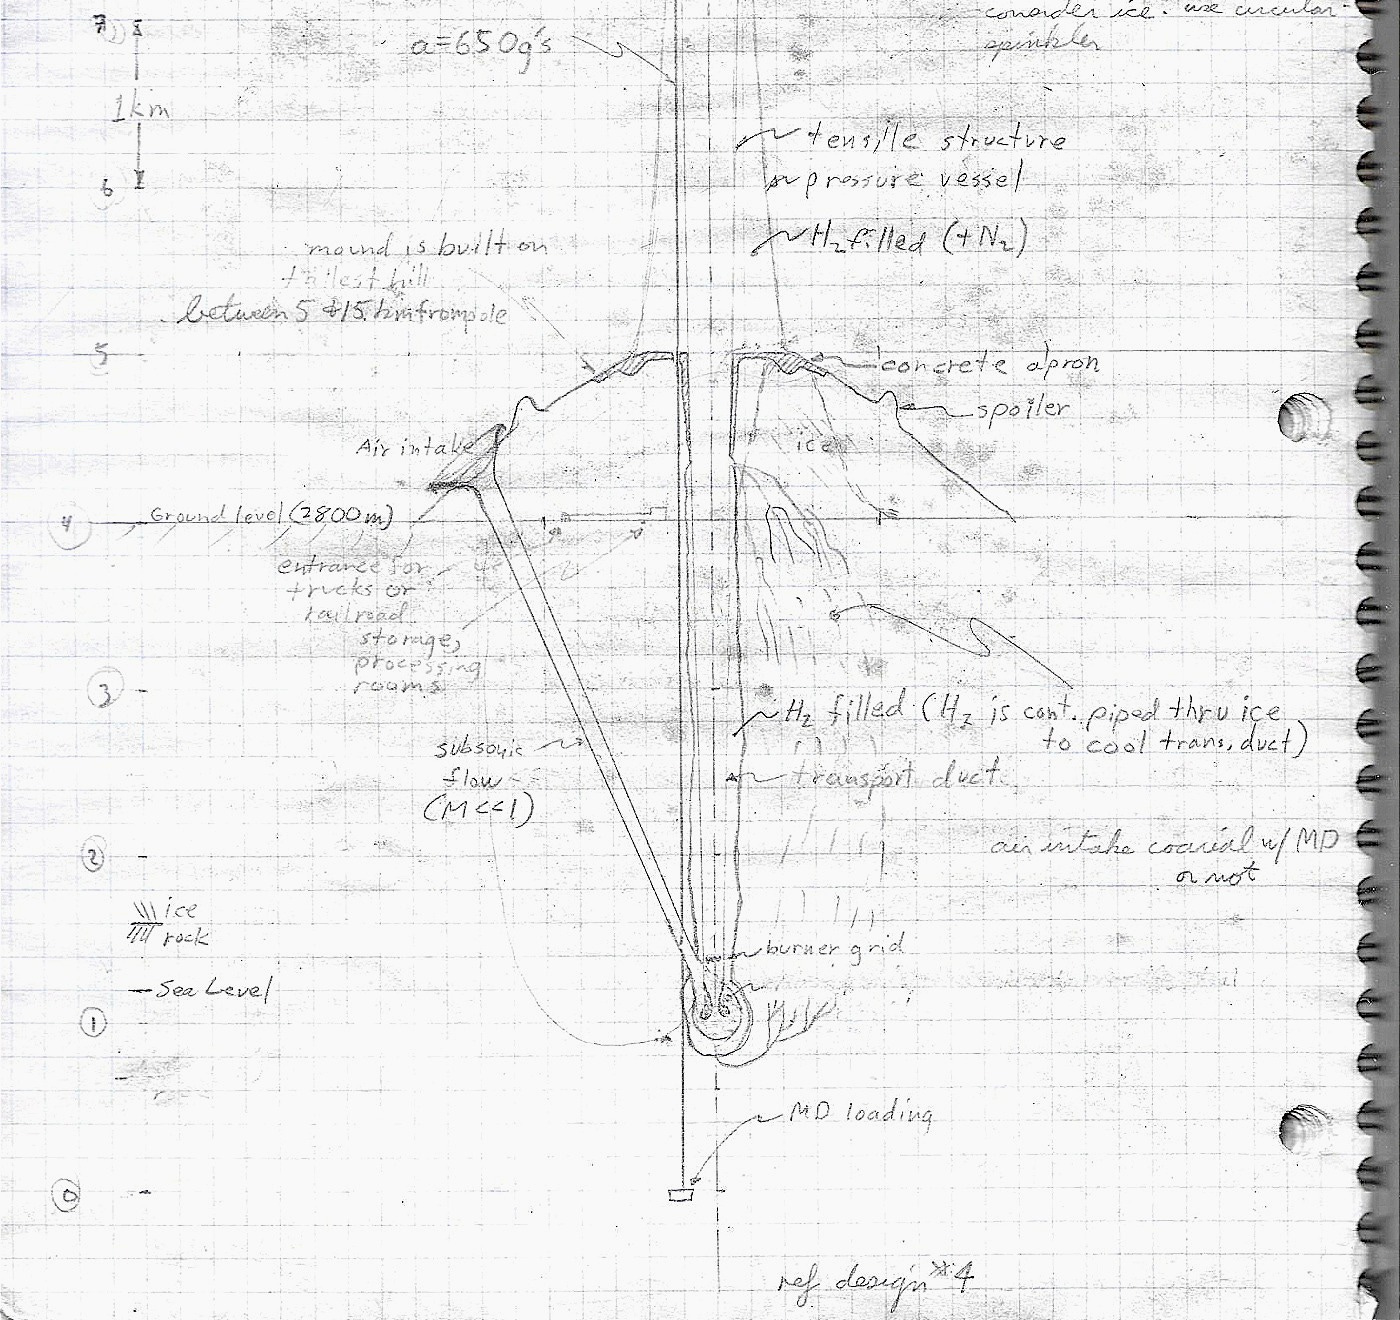 7
consider ice. use circular
a=650g's
1km
tensile structure
pressure vessel
6
H2 filled (+N2)
mound is built on
tallest hill
between 5 & 15 km from pole
5
concrete apron
spoiler
Air intake
ice
4
Ground level (2800m)
entrance for
trucks or
railroad
storage,
processing
rooms
3
H2 filled (H2 is cont. piped thru ice
to cool trans. duct)
subsonic
flow
(M<<1)
transport duct
2
air intake coaxial w/ MD
or not
ice
rock
burner grid
Sea Level
1
MD loading
0
ref design #4